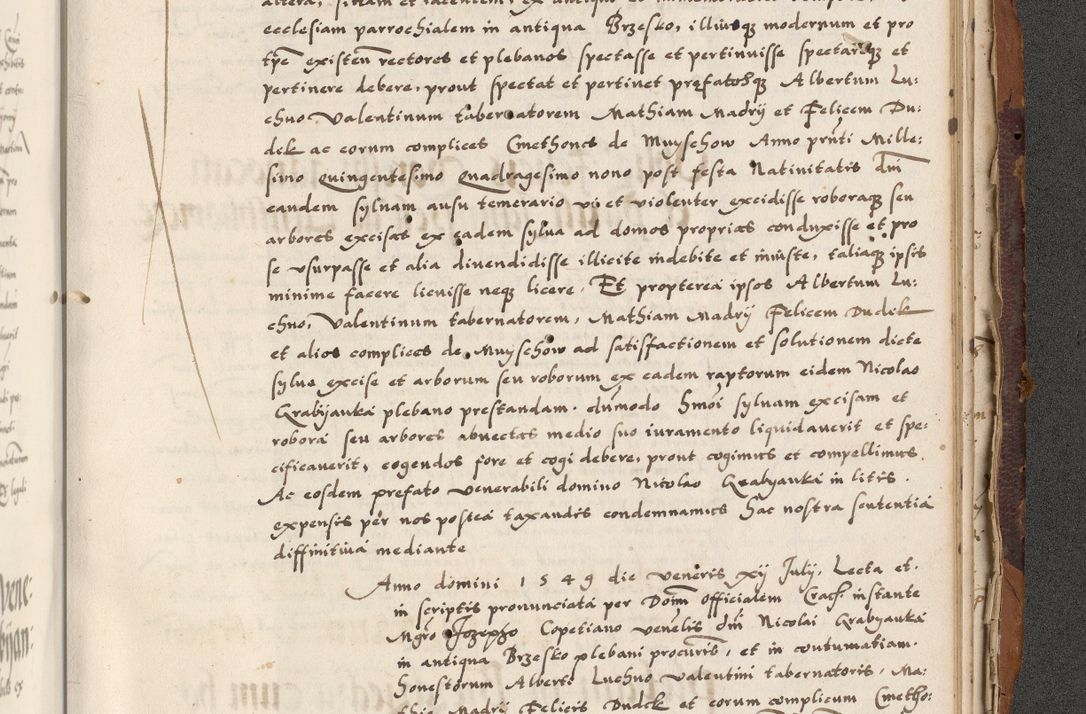 ecclesiam parrochialem in antiqua Brzesko, illiusq modernum et pro
tpe existen rectores et plebanos spectasse et pertinuisse spectareq et
pertinere debere, prout spectat et pertinet prefatosq Albertum Lu:
chno Valentinum tabernatorem Mathiam Madrij et Felicem Du:
dek ac eorum complices Cmethones de Muyschow Anno prnti Mille:
simo Quingentesimo Quadragesimo nono post festa Nativitatis dni
eandem sylvam ausu temerario vi et violenter excidisse roboraq seu
arbores excisas ex eadem sylva ad domos proprias conduxisse et pro
se usurpasse et alia divendidisse illicite indebite et iniuste, taliaq ipsis
minime facere licuisse neq licere. Et propterea ipsos Albertum Lu:
chno, Valentinum tabernatorem, Mathiam Madrij Felicem Dudek
et alios complices de Muyschow ad satisfactionem et solutionem dicte
sylve excise et arborum seu roborum ex eadem raptorum eidem Nicolao
Grabyanka plebano prestandam. dummodo Smoi sylvam excisam et
robora seu arbores abvectas medio suo iuramento liquidaverit et spe:
cificaverit, cogendos fore et cogi debere, prout cogimus et compellimus.
Ac eosdem prefato venerabili domino Nicolao Grabyanka in litis.
expensis per nos postea taxandis condemnamus hac nostra sententia
diffinitiva mediante
Anno domini 1549 die Veneris xij Julij, Lecta et.
in scriptis pronunciata per Dominum officialem Crach. instante
Mgro Jozepho Copetiano venelis dni Nicolai Grabyanka
in antiqua Brzesko plebani procuris, et in contumatiam.
honestorum Alberti Luchno Valentini tabernatoris, Ma:
thie Madrij Felicis Dudek et eorum complicum Cmetho: